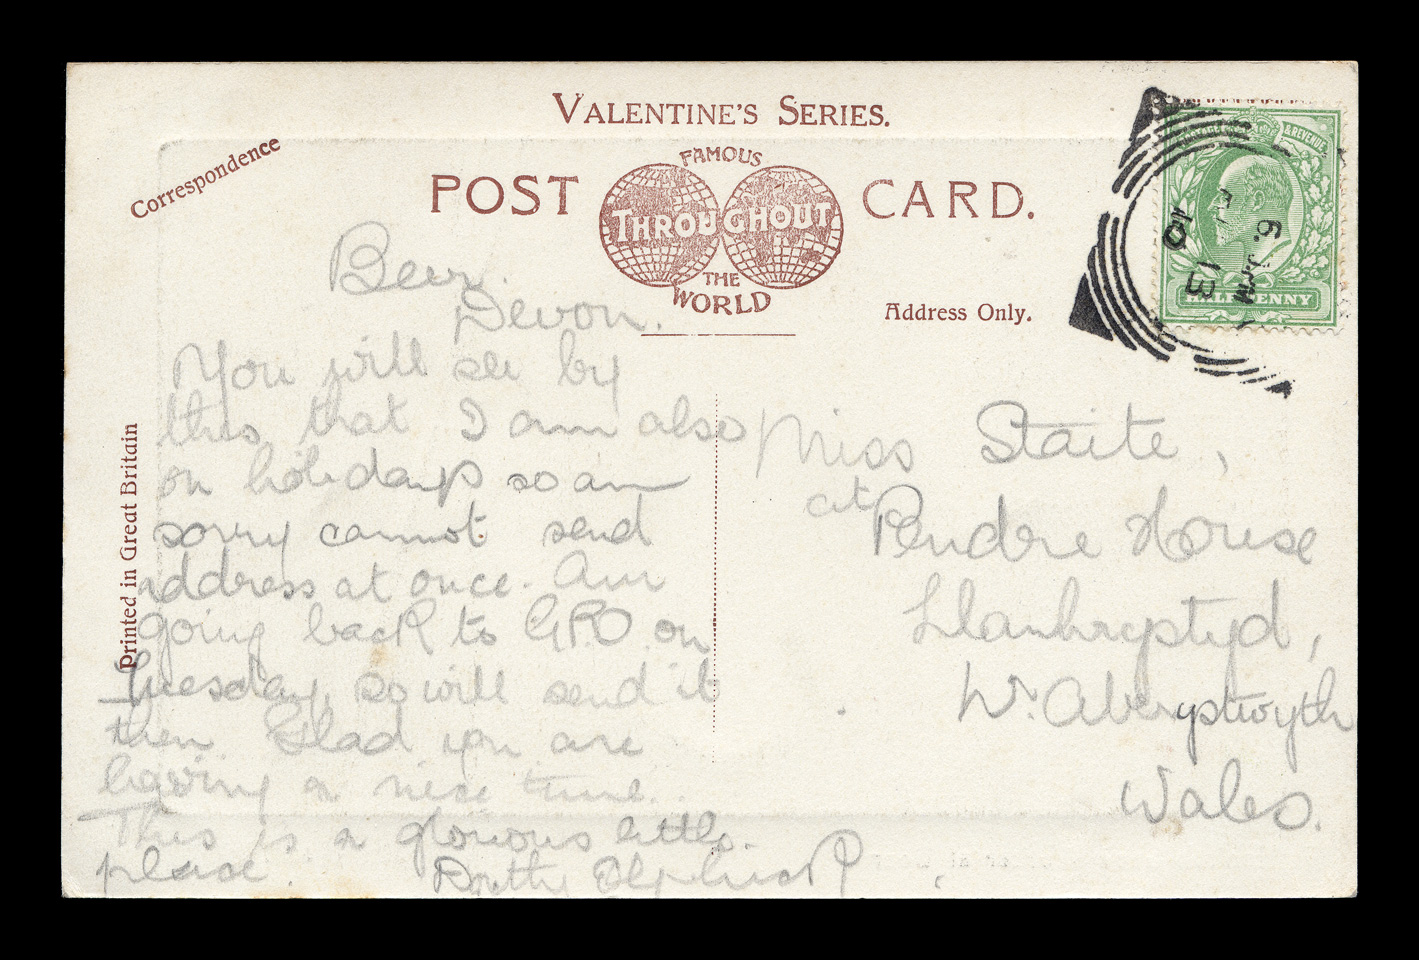 VALENTINE'S SERIES.
Correspondence
POST CARD.
FAMOUS
THROUGHOUT
THE
WORLD
Address Only.
& REVENUE
HALFPENNY
6. PM
10
13
Printed in Great Britain
Beer.
Devon.
You will see by
this that I am also
on holidays so am
sorry cannot send
address at once. Am
going back to GPO on
Tuesday, so will send it
then Glad you are
having a nice time.
This is a glorious little
place. Dorothy
Miss Staite,
at Pendre House
Llanhrystyd,
Nr. Aberystwyth
Wales.